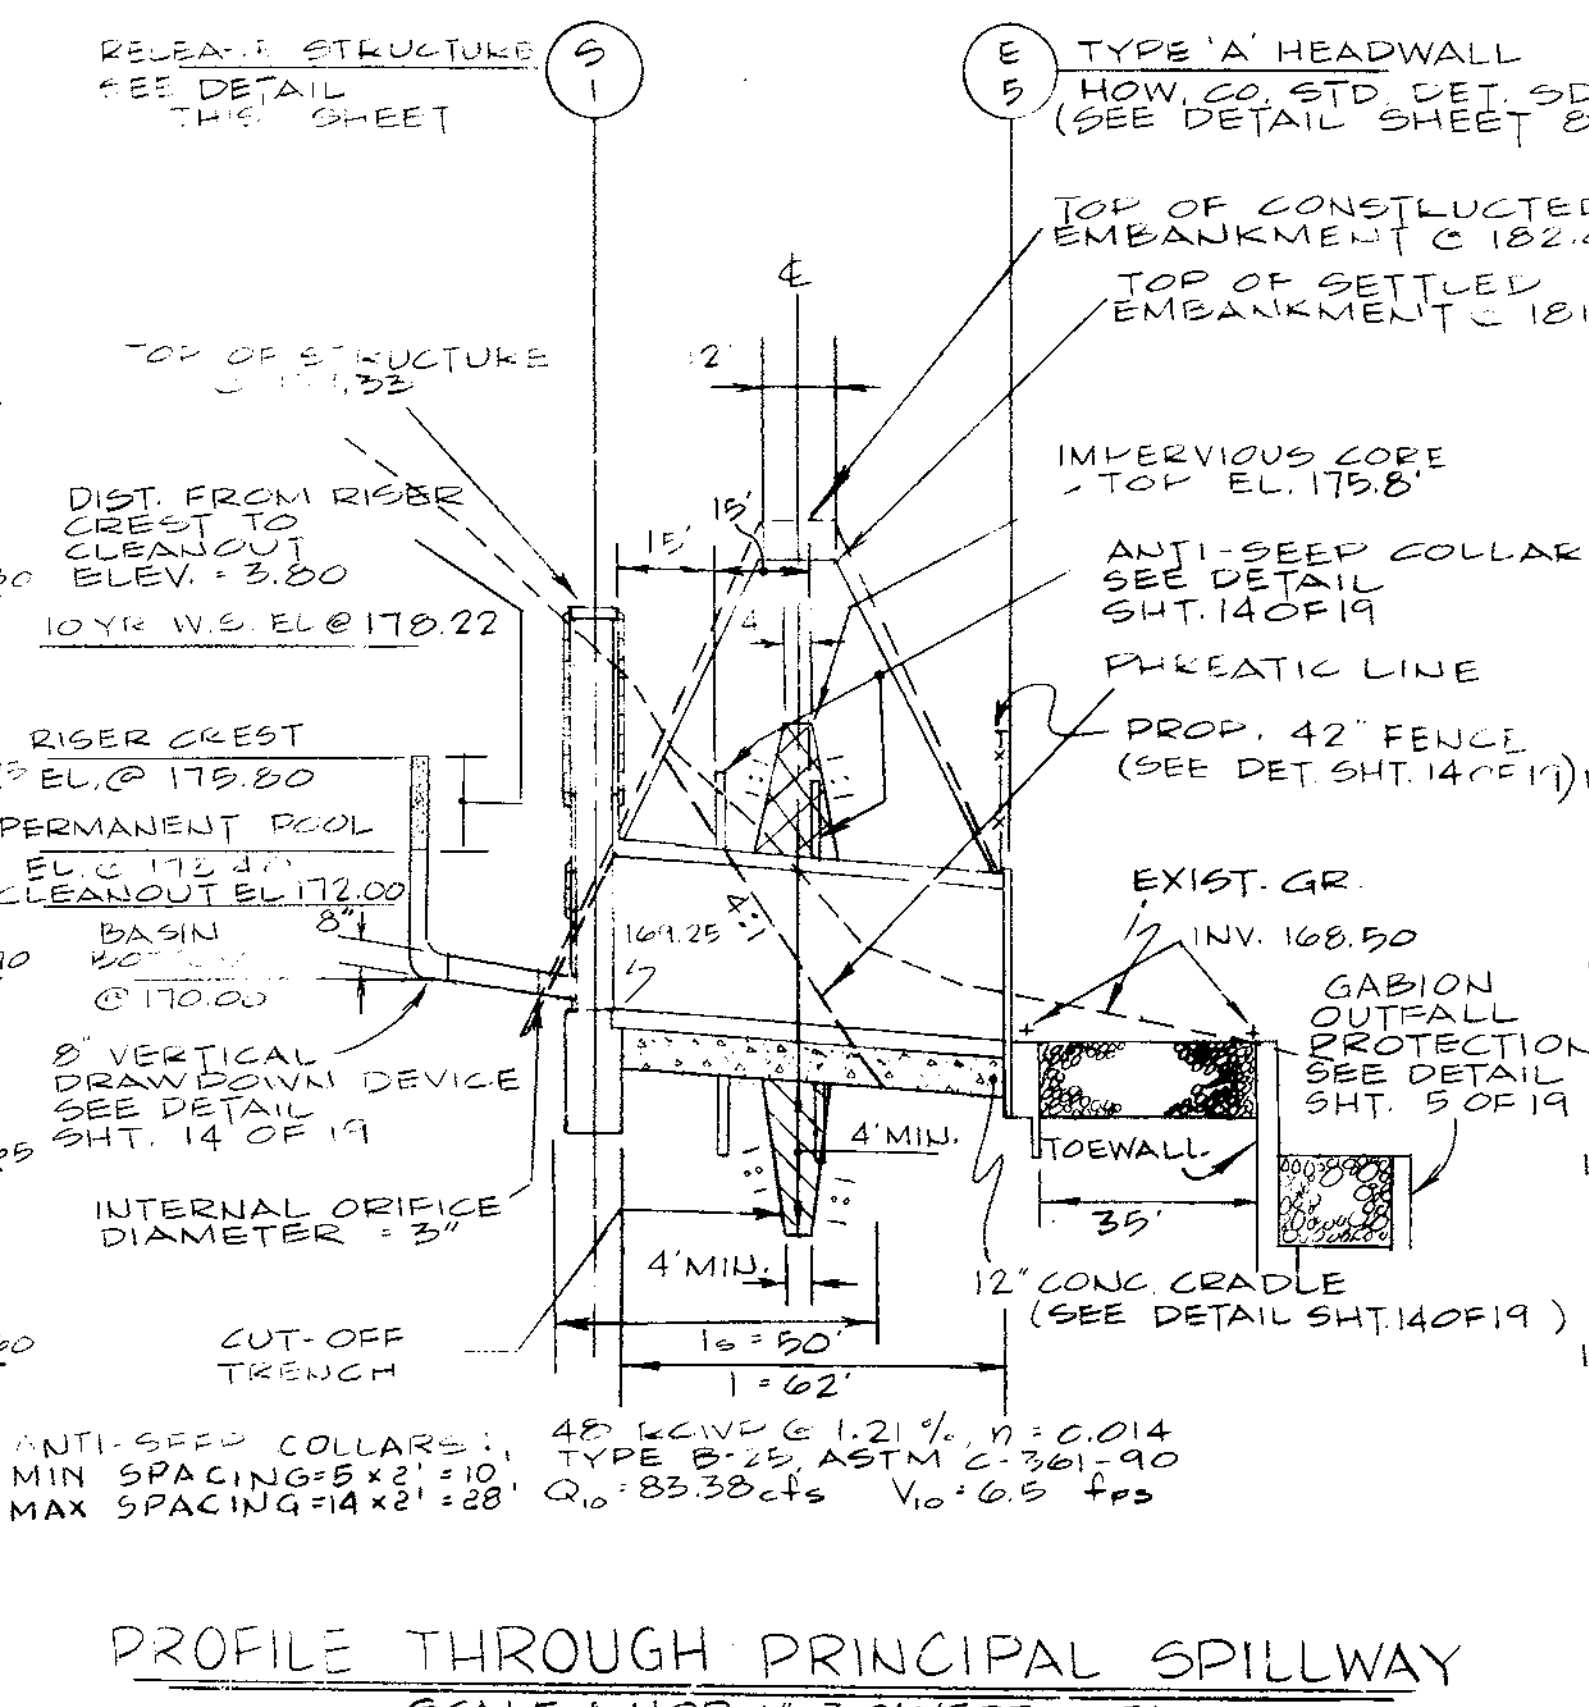 STRUCTURE
SEE DETAIL
THIS SHEET
S
1
E
5
TYPE 'A' HEADWALL
HOW. CO. STD. DET. SD
(SEE DETAIL SHEET 8
TOP OF CONSTRUCTED
EMBANKMENT @ 182.
TOP OF SETTLED
EMBANKMENT @ 181
℄
TOP OF STRUCTURE
12'
DIST. FROM RISER
CREST TO
CLEANOUT
ELEV. = 3.80
10 YR W.S. EL @ 178.22
15'
15'
4
IMPERVIOUS CORE
TOP EL. 175.8'
ANTI-SEEP COLLAR
SEE DETAIL
SHT. 14 OF 19
PHREATIC LINE
PROP. 42" FENCE
(SEE DET. SHT. 14 OF 19)
RISER CREST
EL. @ 175.80
PERMANENT POOL
EL. @
CLEANOUT EL 172.00
8"
BASIN
@ 170.00
169.25
EXIST. GR.
INV. 168.50
GABION
OUTFALL
PROTECTION
SEE DETAIL
SHT. 5 OF 19
8" VERTICAL
DRAWDOWN DEVICE
SEE DETAIL
SHT. 14 OF 19
4' MIN.
TOEWALL
35'
INTERNAL ORIFICE
DIAMETER = 3"
4' MIN.
12" CONC. CRADLE
(SEE DETAIL SHT. 14 OF 19)
CUT-OFF
TRENCH
ls = 50'
l = 62'
ANTI-SEEP COLLARS:
MIN SPACING = 5 x 2' = 10'
MAX SPACING = 14 x 2' = 28'
48 RCWP @ 1.21 %, n = 0.014
TYPE B-25, ASTM C-361-90
Q10 = 83.38 cfs V10 = 6.5 fps
PROFILE THROUGH PRINCIPAL SPILLWAY